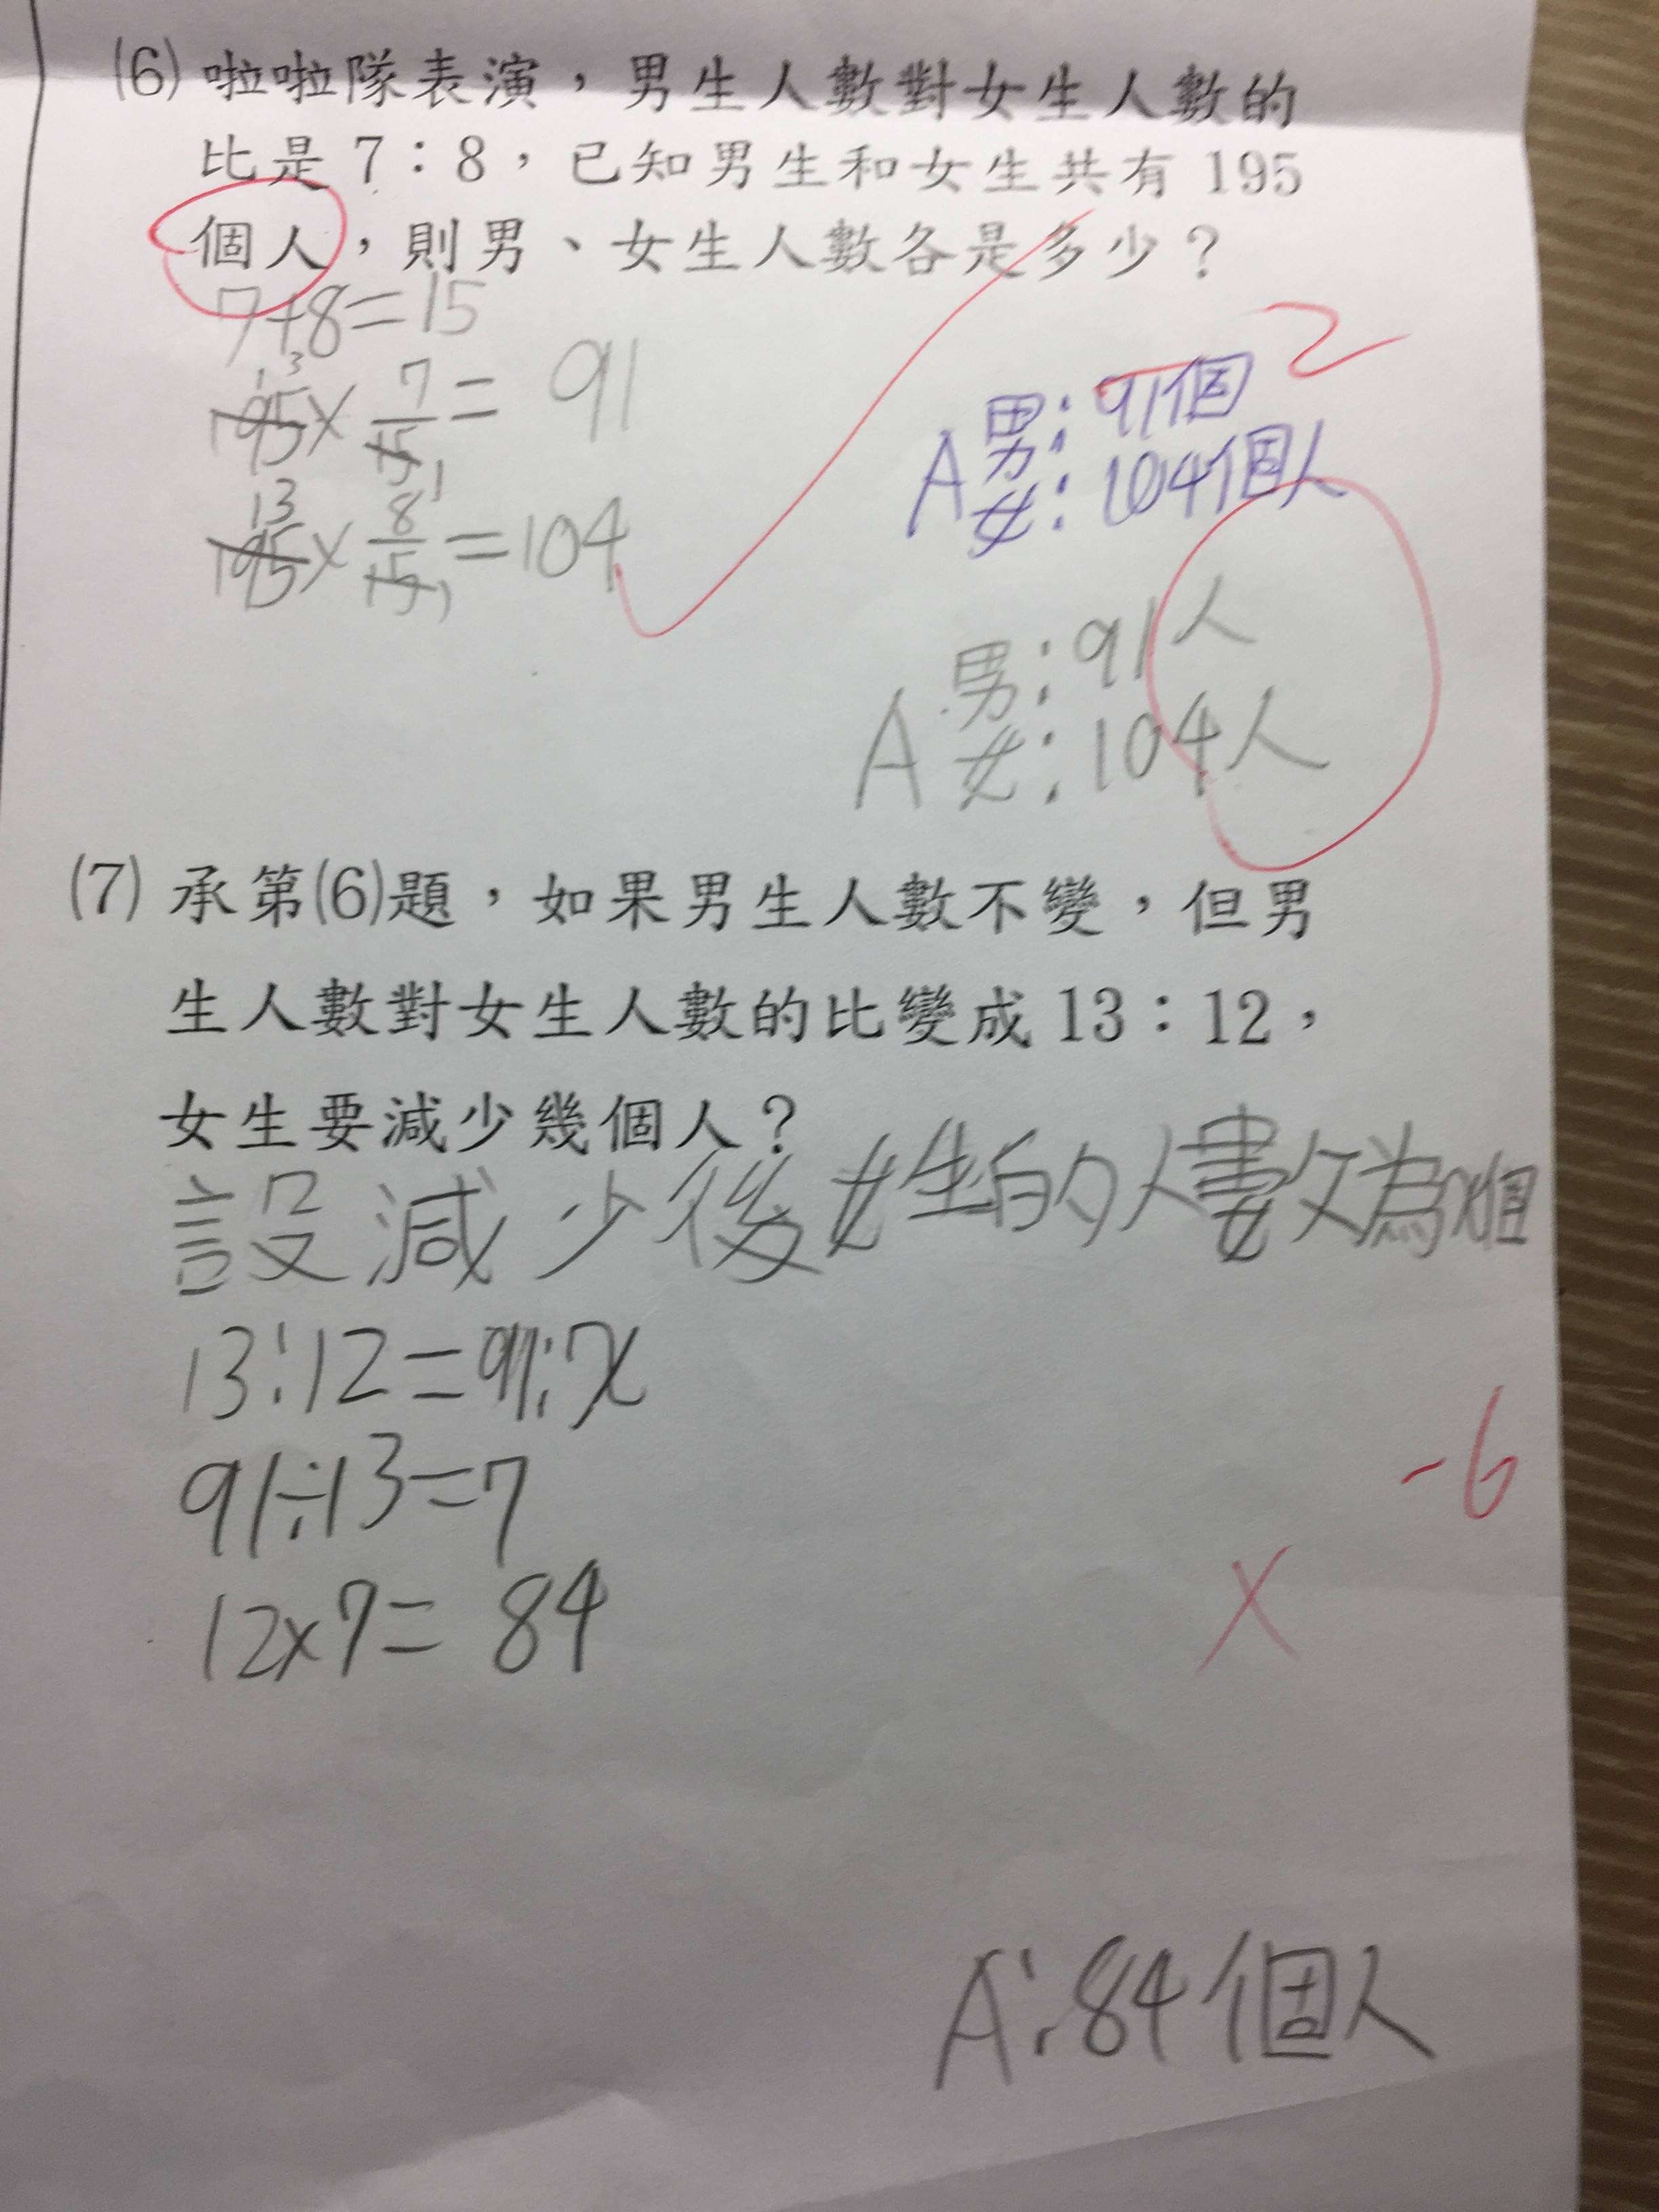 (6) 啦啦隊表演，男生人數對女生人數的
比是 7：8，已知男生和女生共有 195
個人，則男、女生人數各是多少？
7+8=15
195× 7/15 = 91
13
195× 8/15 =104
2
A 男：91個
女：104個人
A 男：91人
女：104人
(7) 承第(6)題，如果男生人數不變，但男
生人數對女生人數的比變成 13：12，
女生要減少幾個人？
設減少後女生的人數為x個
13:12=91:x
91÷13=7
-6
12×7=84
×
A:84個人